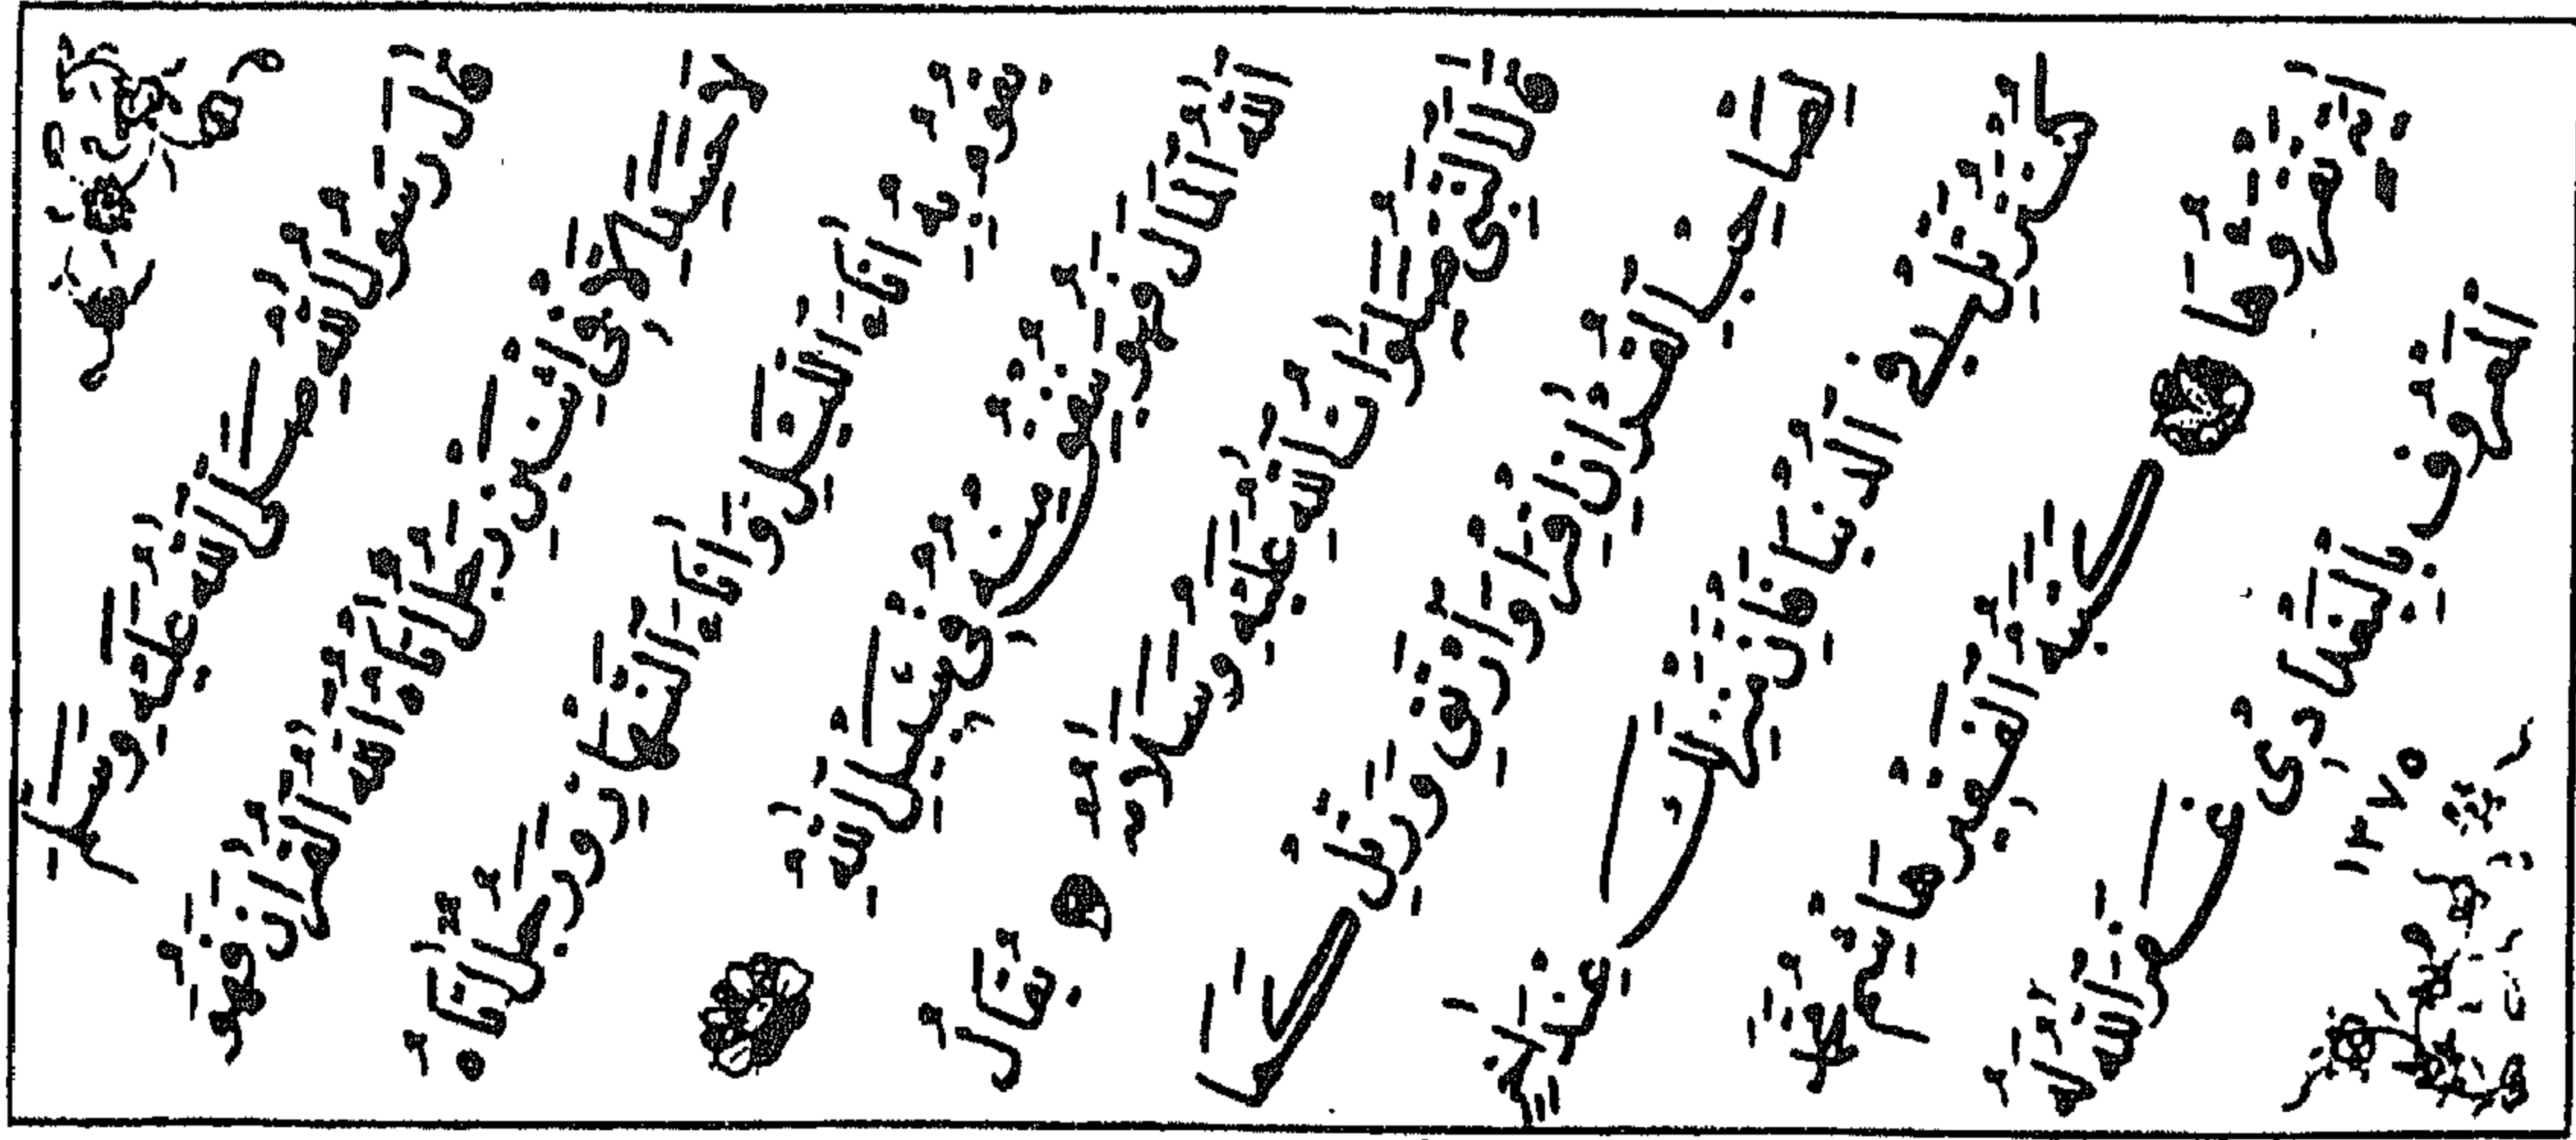 قال رسول الله صلى الله عليه وسلم
لا حسد الا في اثنتين رجل آتاه الله القرآن فهو
يقوم به آناء الليل وآناء النهار ورجل آتاه
الله مالا فهو ينفق منه في سبيل الله
قال النبي صلى الله عليه وسلم يقال
لصاحب القرآن اقرا وارق ورتل كما
كنت ترتل في الدنيا فان منزلتك عند آخر
آية تقرؤها كتبه الفقير حافظ
غفر الله له
١٢٧٥